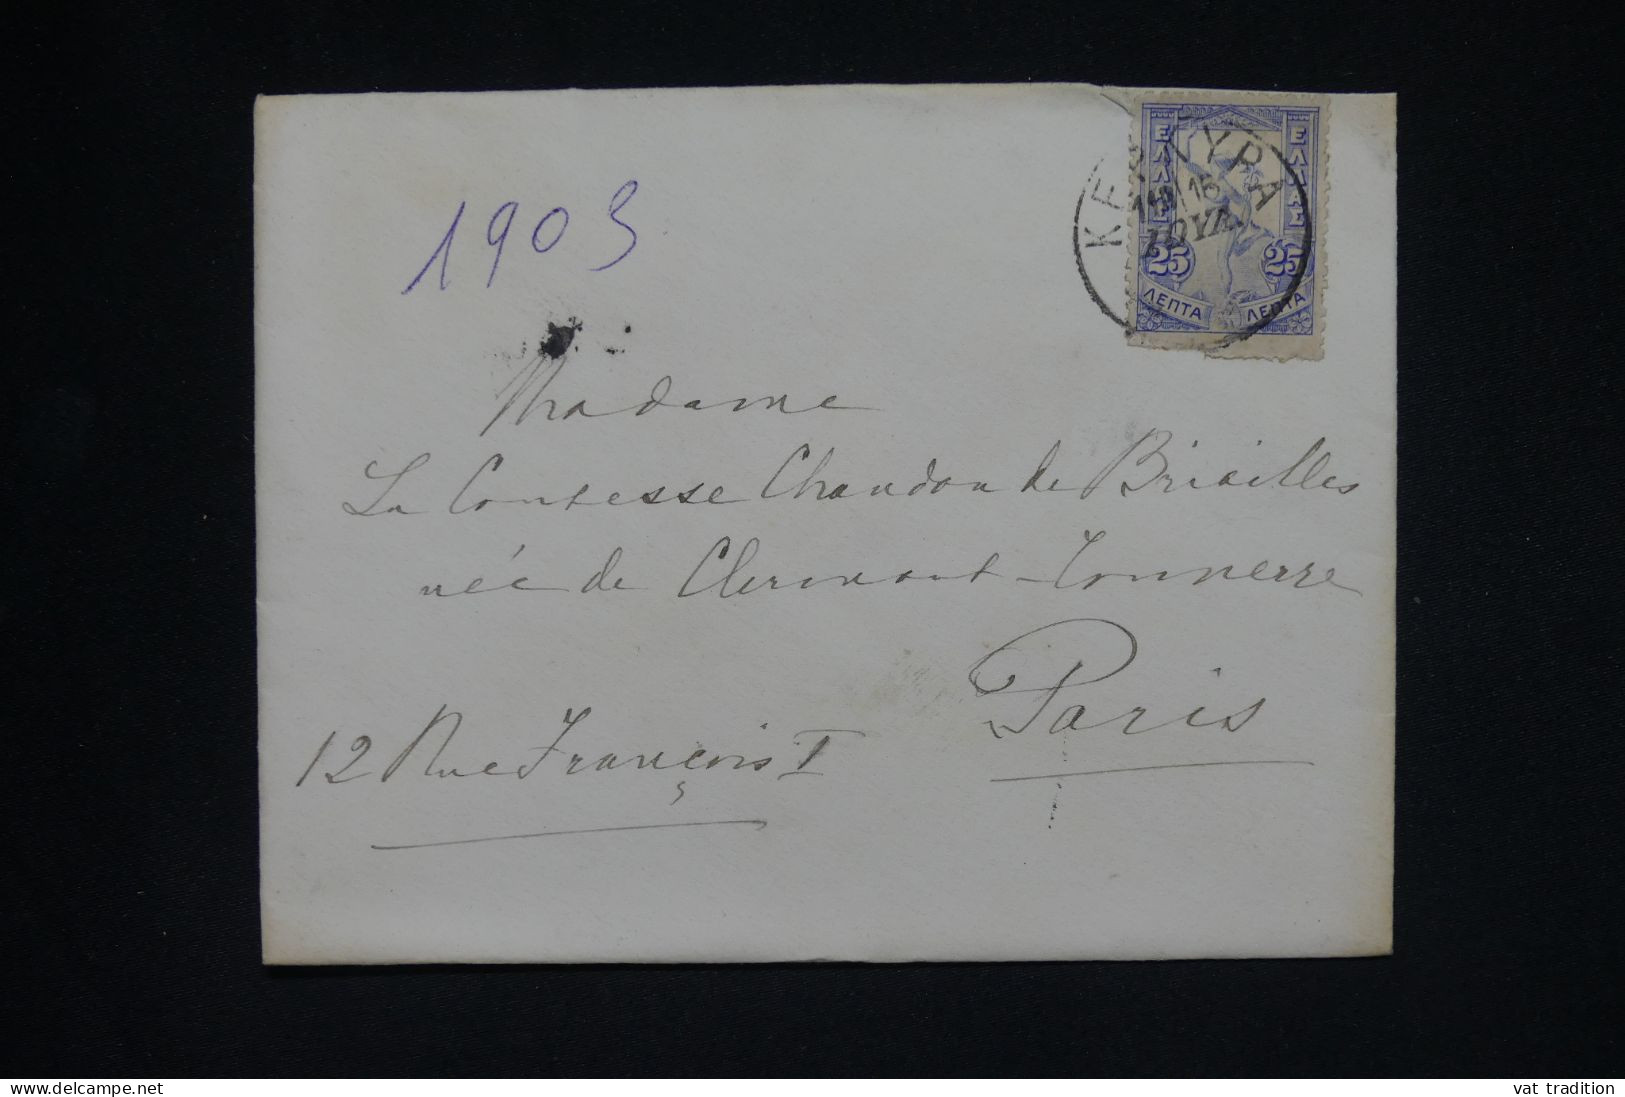 1903
ΚΕΡΚΥΡΑ
ΕΛΛΑΣ
25 25
ΛΕΠΤΑ ΛΕΠΤΑ
Madame
La Comtesse Chandon de Briailles
née de Clermont-Tonnerre
Paris
12 Rue François I
www.delcampe.net
vat tradition